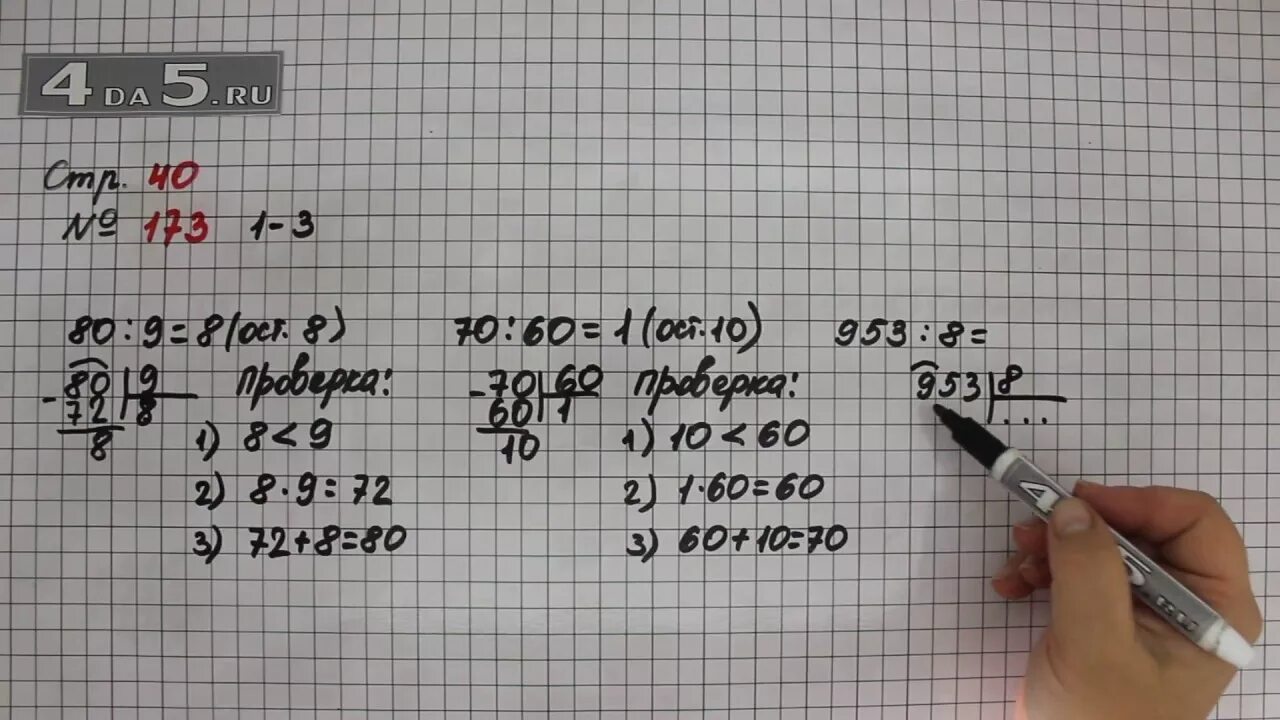 4DA5.RU
Стр. 40
№ 173 1-3
80:9=8(ост. 8)
80 9
- 72 8
8
Проверка:
1) 8<9
2) 8·9=72
3) 72+8=80
70:60=1(ост.10)
- 70 60
60 1
10
Проверка:
1) 10<60
2) 1·60=60
3) 60+10=70
953:8=
953 8
...